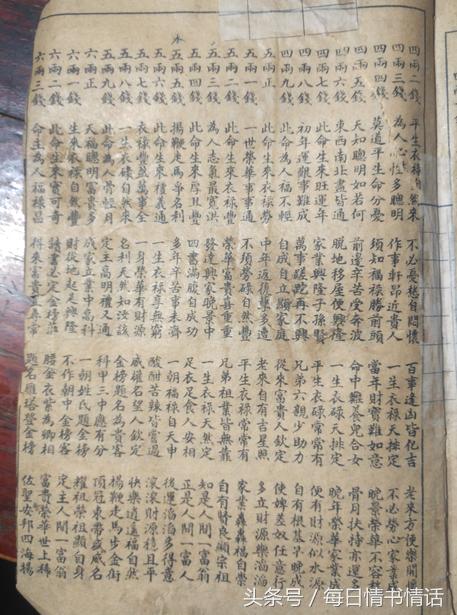 四兩二錢 平生衣祿自然來 不必憂愁自問懷 百事逢凶皆化吉 老來方便樂開懷
四兩三錢 為人心性多聰明 作事軒昂近貴人 一生衣祿天排定 不必勞心家業成
四兩四錢 莫道平生命分憂 須知福祿勝前頭 當年財寶難如意 晚景榮華不容易
四兩五錢 天如聰明如若何 前邊辛苦受奔波 命中難養兒女 骨月扶持亦運多
四兩六錢 東西南北盡皆通 脫地移居便興隆 一生衣碌天排定 晚年榮華家業成
四兩七錢 此命生來旺運年 家業興隆子孫賢 平生衣碌常常有 便有財源似水源
四兩八錢 初年運觀事難成 萬事蹉跎再不興 兄弟六親少助力 自有根基早晚成
四兩九錢 此命為人福不輕 自成自立顯家庭 從來富貴人欽定 使婢差奴任意行
五兩正 此命生來衣祿勞 中年返復艱多遭 老來自有吉星照 多立財源樂滔滔
五兩一錢 一世榮華事事通 不須勞碌自亨通 平生衣祿常常有 家業轟轟福自榮
五兩二錢 此命生來衣祿豐 榮華富貴喜重重 兄弟祖業皆無靠 自有賢良顯宗祖
五兩三錢 為人志氣最寬洪 發達興家晚景中 一生衣祿天然定 知是人間一富翁
五兩四錢 此命生來厚且豐 四書滿腹自成功 足衣足食人安相 正是人間一富人
五兩五錢 揚鞭走馬爭名利 多年辛苦事未濟 一朝福祿自天申 後運滔滔多得意
五兩六錢 此命生來禮義通 一生衣祿享無窮 酸酣苦辣皆嘗過 滾滾財源穩且平
五兩七錢 衣祿豐然萬事全 一身榮華有財源 威權名望人欽定 快樂逍遙福自然
五兩八錢 一生衣祿自然來 名利天然如汝該 金榜題名為貴客 揚鞭走馬步金街
五兩九錢 此命為人骨輕月 定主高明禮又通 科甲三中應有分 頂冠束帶威威名
六兩正 天福聰明富貴多 成家立業中高科 一朝姓氏題金榜 耀祖榮宗顯自身
六兩一錢 生來衣祿自然豐 財從地起足興隆 不作朝中金榜客 定主人間一富翁
六兩二錢 此命生來實可奇 讀書必定金榜 腰金衣紫為卿相 富貴榮華世上稀
六兩三錢 命主為人福祿昌 得來富貴異尋常 題名雁塔登金榜 佐聖安邦四海揚
头条号 / 每日情书情话